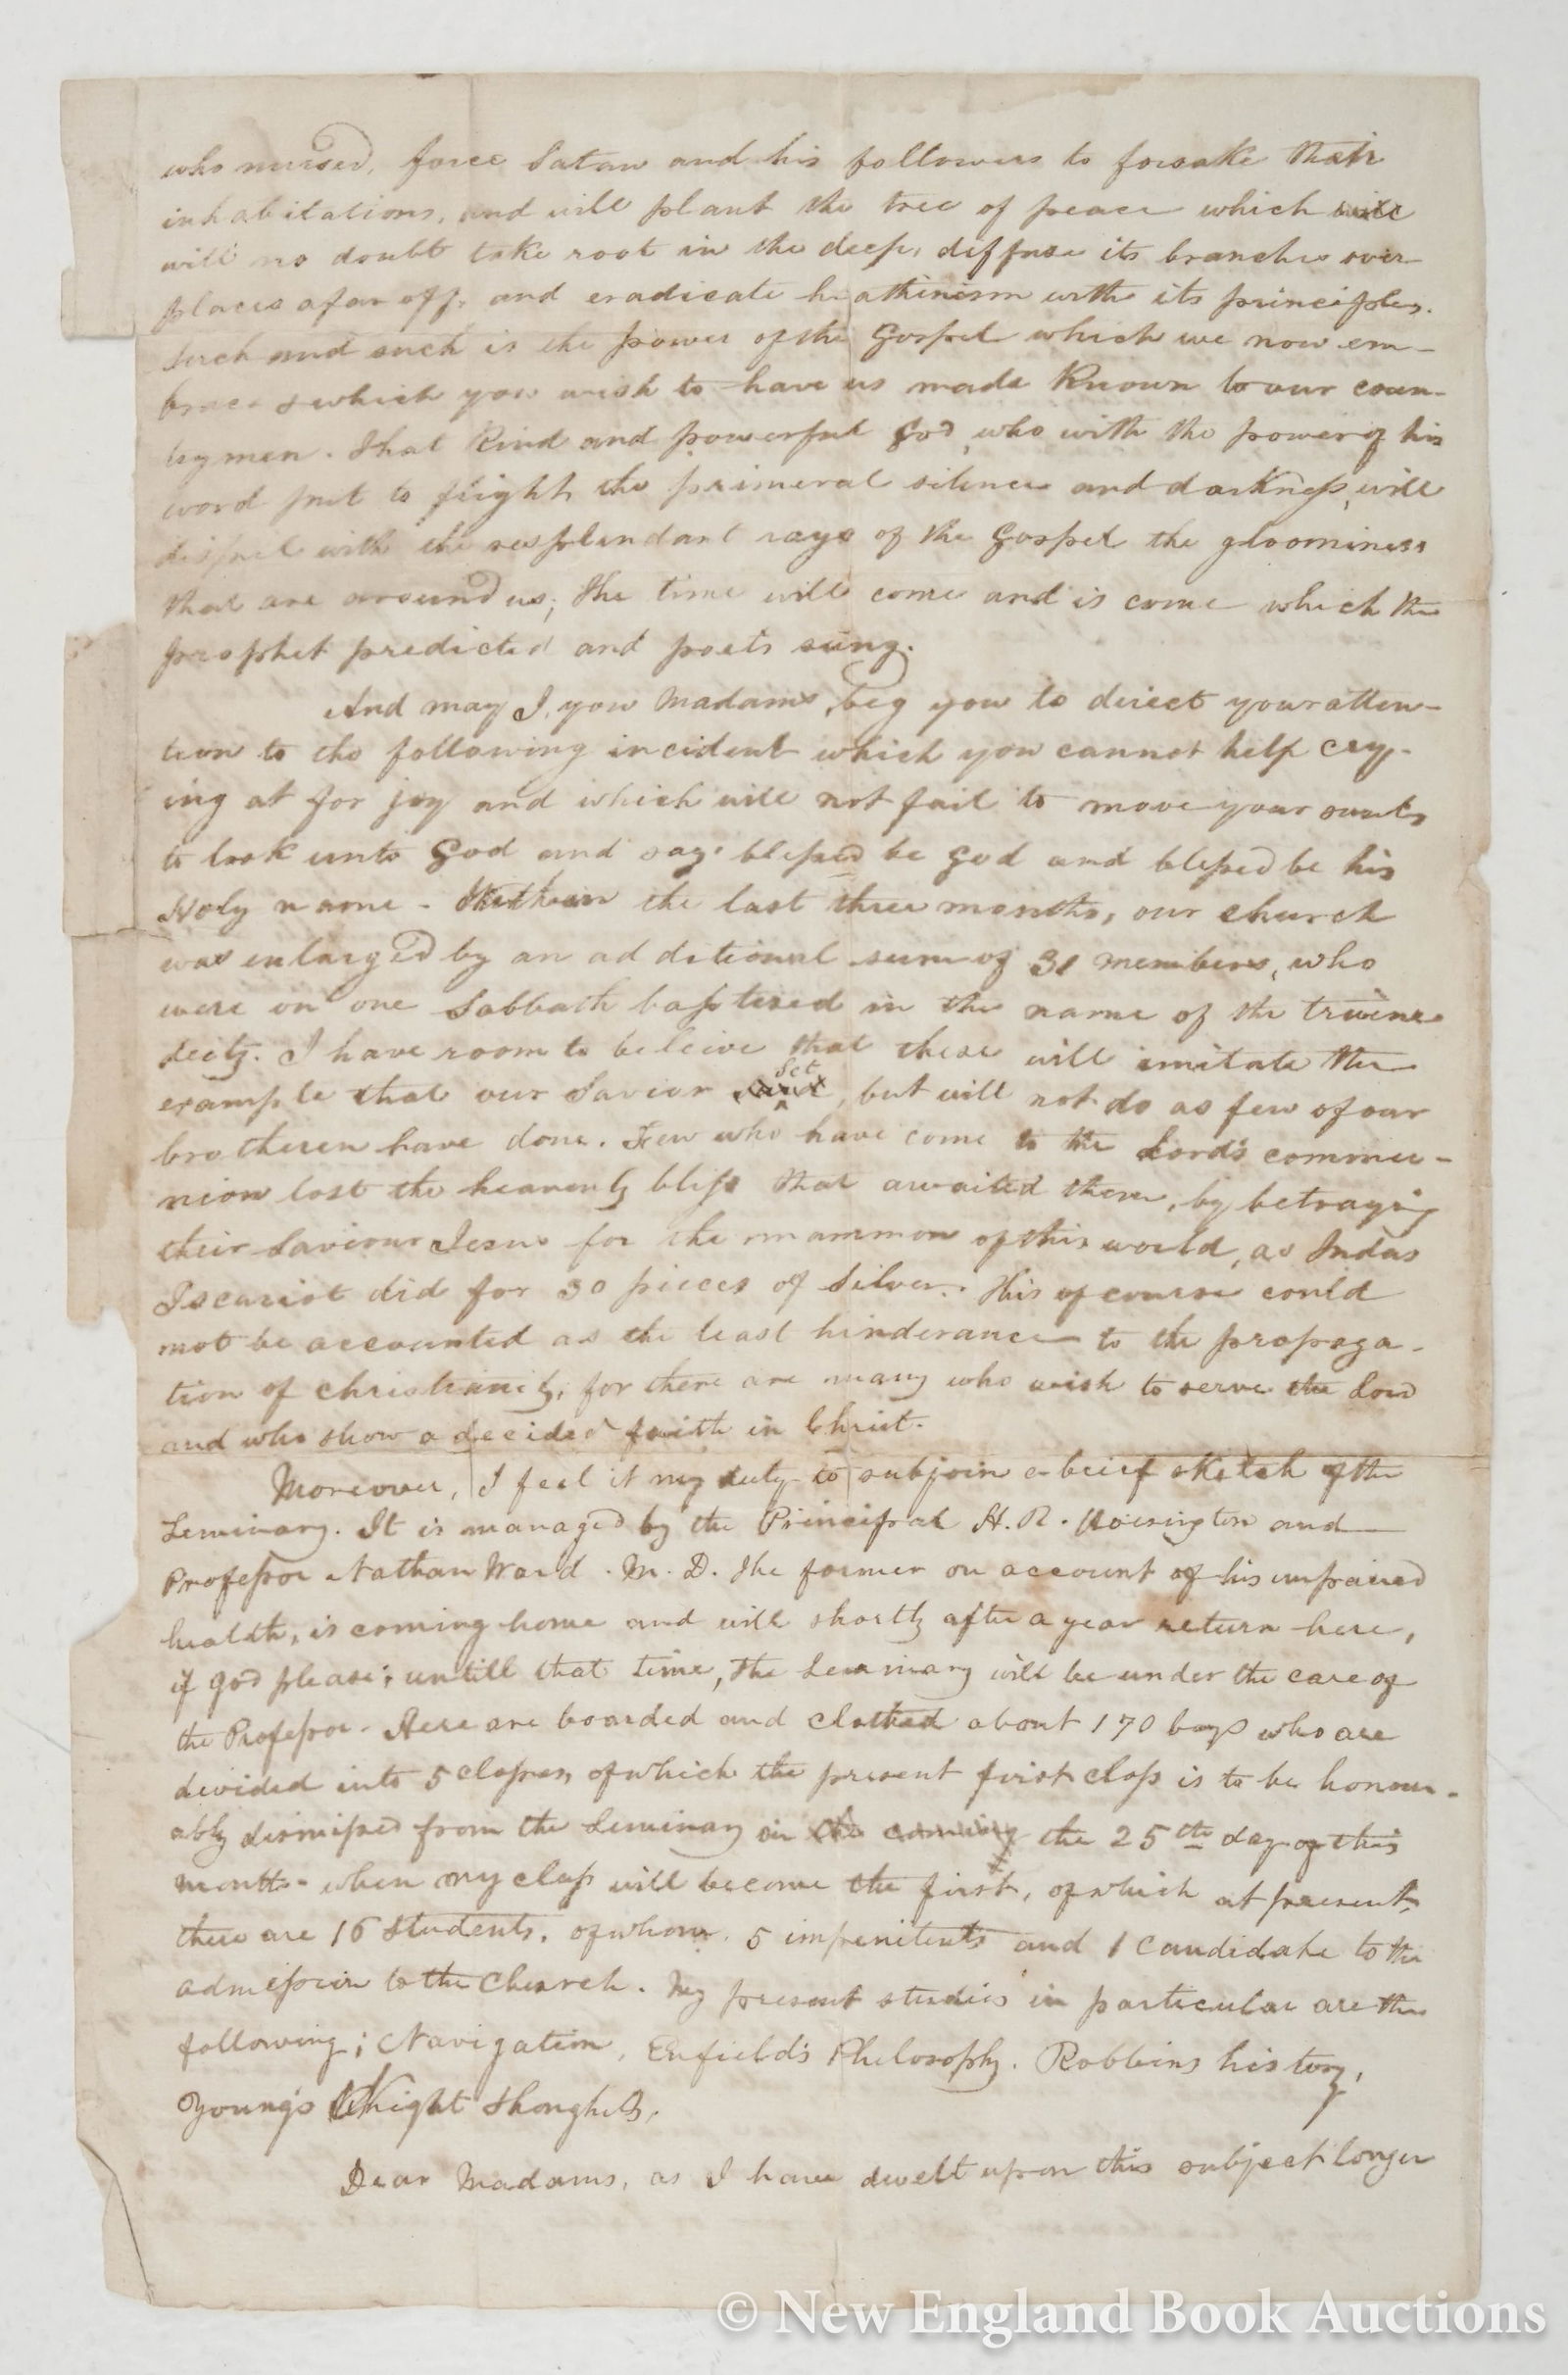 who nursed, force Satan and his followers to forsake their
inhabitations, and will plant the tree of peace which will
will no doubt take root in the deep, diffuse its branches over
places afar off, and eradicate heathinism with its principles.
Such and such is the power of the Gospel which we now em-
brace & which you wish to have us made known to our coun-
trymen. That kind and powerful God, who with the power of his
word put to flight the primeral silence and darkness, will
dispel with the resplendant rays of the Gospel the gloominess
that are around us; the time will come and is come which the
prophet predicted and poets sung.
And may I, you Madams, beg you to direct your atten-
tion to the following incident which you cannot help cry-
ing at for joy and which will not fail to move your souls
to look unto God and say: blessed be God and blessed be his
Holy name - Within the last three months, our church
was enlarged by an additional sum of 31 members, who
were on one Sabbath baptised in the name of the triune
deity. I have room to beleive that these will imitate the
example that our Savior set, but will not do as few of our
brotheren have done. Few who have come to the Lord's commu-
nion lost the heavenly bliss that awaited them, by betraying
their Saviour Jesus for the mammon of this world, as Judas
Iscariot did for 30 pieces of Silver. This of course could
not be accounted as the least hinderance to the propaga-
tion of Christianity, for there are many who wish to serve the Lord
and who show a decided faith in Christ.
Moreover, I feel it my duty to subjoin a brief sketch of the
Seminary. It is managed by the Principal H. R. Hoisington and
Professor Nathan Ward. M. D. The former on account of his impaired
health, is coming home and will shortly after a year return here,
if God please; untill that time, the Seminary will be under the care of
the Professor. Here are boarded and clothed about 170 boys who are
devided into 5 classes, of which the present first class is to be honour-
ably dismissed from the Seminary on the coming the 25th day of this
month - when my class will become the first, of which at present,
there are 16 students, of whom, 5 impenitents and 1 candidate to the
admission to the Church. My present studies in particular are the
following; Navigation, Enfield's Philosophy. Robbins history,
Young's Night Thoughts.
Dear Madams, as I have dwelt upon this subject longer
© New England Book Auctions